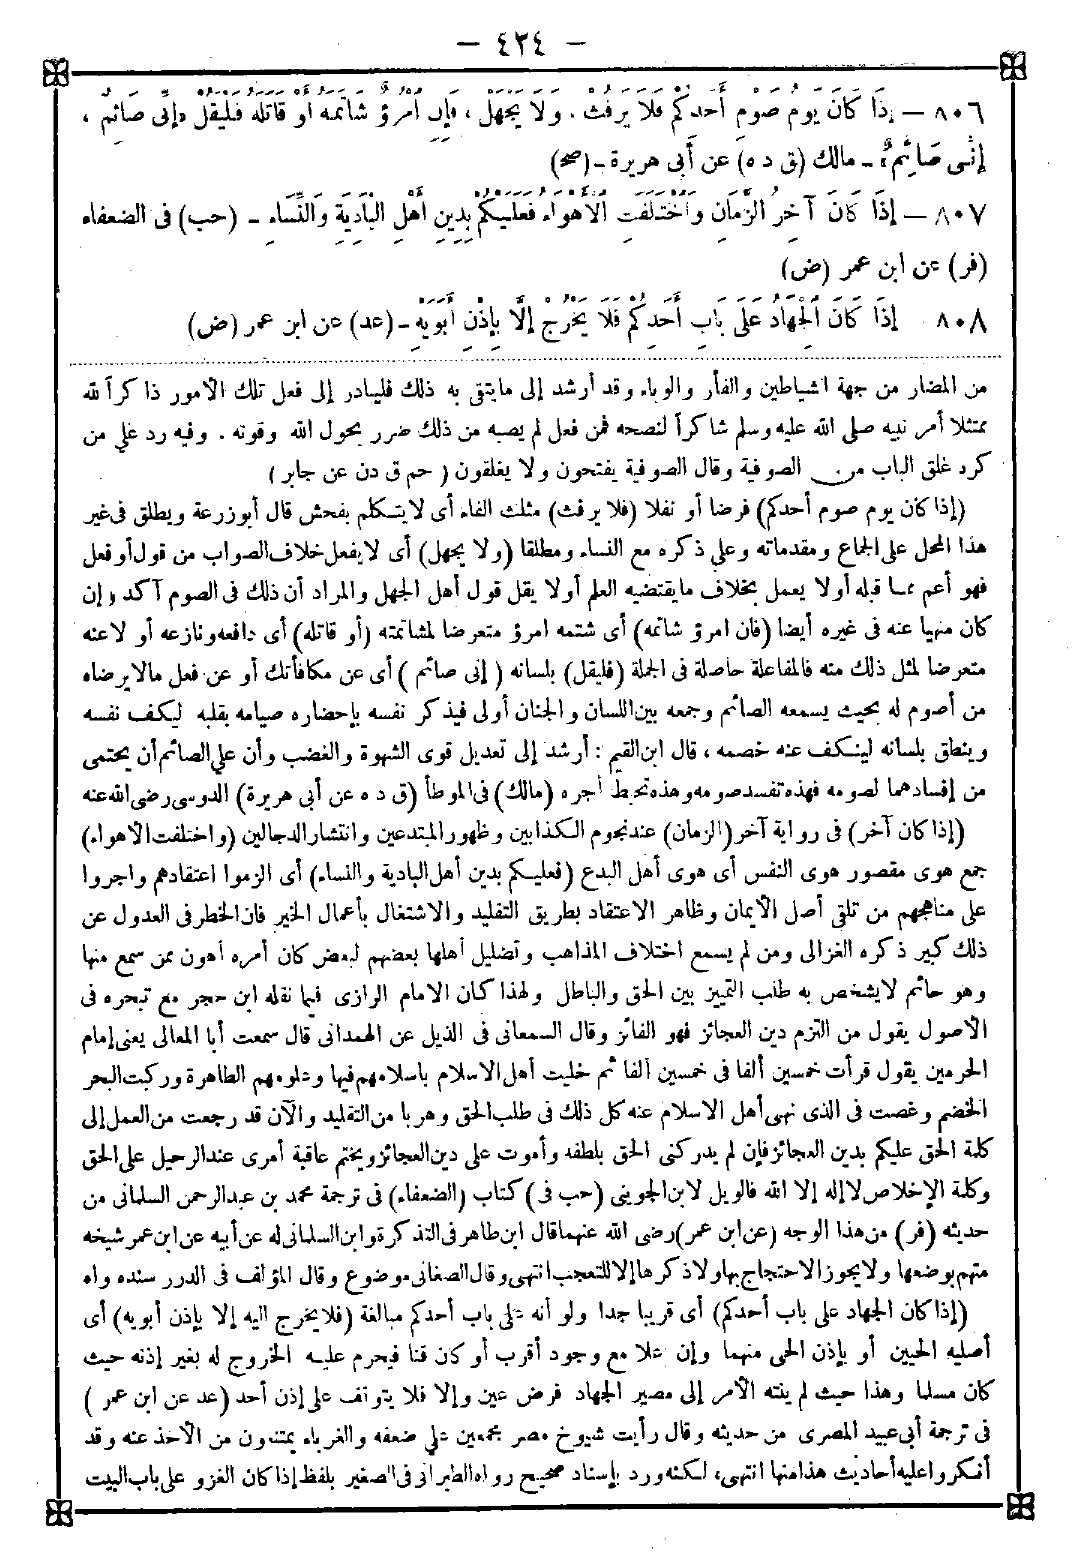 - ٤٢٤ -
٨٠٦ - إِذَا كَانَ يَوْمُ صَوْمِ أَحَدِكُمْ فَلَا يَرْفُثْ ، وَلَا يَجْهَلْ ، فَإِنِ امْرُؤٌ شَاتَمَهُ أَوْ قَاتَلَهُ فَلْيَقُلْ «إِنِّى صَائِمٌ ،
إِنِّى صَائِمٌ» - مالك (ق د ه) عن أبى هريرة - (صح)
٨٠٧ - إِذَا كَانَ آخِرُ الزَّمَانِ وَاخْتَلَفَتِ الْأَهْوَاءُ فَعَلَيْكُمْ بِدِينِ أَهْلِ الْبَادِيَةِ وَالنِّسَاءِ - (حب) فى الضعفاء
(فر) عن ابن عمر (ض)
٨٠٨ إِذَا كَانَ الْجِهَادُ عَلَى بَابِ أَحَدِكُمْ فَلَا يَخْرُجْ إِلَّا بِإِذْنِ أَبَوَيْهِ - (عد) عن ابن عمر (ض)
من المضار من جهة الشياطين والفأر والوباء وقد أرشد إلى مايتقى به ذلك فليبادر إلى فعل تلك الأمور ذاكراً لله
ممتثلا أمر نبيه صلى الله عليه وسلم شاكراً لنصحه فمن فعل لم يصبه من ذلك ضرر بحول الله وقوته . وفيه رد على من
كره غلق الباب من الصوفية وقال الصوفية يفتحون ولا يغلقون (حم ق دن عن جابر)
(إذا كان يوم صوم أحدكم) فرضا أو نفلا (فلا يرفث) مثلث الفاء أى لايتكلم بفحش قال أبو زرعة ويطلق فى غير
هذا المحل على الجماع ومقدماته وعلى ذكره مع النساء ومطلقا (ولا يجهل) أى لايفعل خلاف الصواب من قول أو فعل
فهو أعم مما قبله أولا يعمل بخلاف مايقتضيه العلم أولا يقل قول أهل الجهل والمراد أن ذلك فى الصوم آكد وإن
كان منهيا عنه فى غيره أيضا (فان امرؤ شاتمه) أى شتمه امرؤ متعرضا لمشاتمته (أو قاتله) أى دافعه ونازعه أو لاعنه
متعرضا لمثل ذلك منه فالمفاعلة حاصلة فى الجملة (فليقل) بلسانه (إنى صائم) أى عن مكافأتك أو عن فعل مالا يرضاه
من أصوم له بحيث يسمعه الصائم وجمعه بين اللسان والجنان أولى فيذكر نفسه بإحضاره صيامه بقلبه ليكف نفسه
وينطق بلسانه لينكف عنه خصمه ، قال ابن القيم : أرشد إلى تعديل قوى الشهوة والغضب وأن على الصائم أن يحتمى
من إفسادهما لصومه فهذه تفسد صومه وهذه تحبط أجره (مالك) فى الموطأ (ق د ه عن أبى هريرة) الدوسى رضى الله عنه
(إذا كان آخر) فى رواية آخر (الزمان) عند نجوم الكذابين وظهور المبتدعين وانتشار الدجالين (واختلفت الأهواء)
جمع هوى مقصور هوى النفس أى هوى أهل البدع (فعليكم بدين أهل البادية والنساء) أى الزموا اعتقادهم واجروا
على مناهجهم من تلقى أصل الأيمان وظاهر الاعتقاد بطريق التقليد والاشتغال بأعمال الخير فان الخطر فى العدول عن
ذلك كبير ذكره الغزالى ومن لم يسمع اختلاف المذاهب وتضليل أهلها بعضهم لبعض كان أمره أهون ممن سمع منها
وهو حائم لايشخص به طلب التمييز بين الحق والباطل ولهذا كان الامام الرازى فيما نقله ابن حجر مع تبحره فى
الأصول يقول من التزم دين العجائز فهو الفائز وقال السمعانى فى الذيل عن الهمدانى قال سمعت أبا المعالى يعنى إمام
الحرمين يقول قرأت خمسين ألفا فى خمسين ألفا ثم خليت أهل الاسلام باسلامهم فيها وعلومهم الظاهرة وركبت البحر
الخضم وغصت فى الذى نهى أهل الاسلام عنه كل ذلك فى طلب الحق وهربا من التقليد والآن قد رجعت من العمل إلى
كلمة الحق عليكم بدين العجائز فإن لم يدركنى الحق بلطفه وأموت على دين العجائز ويختم عاقبة أمرى عند الرحيل على الحق
وكلمة الإخلاص لا إله إلا الله فالويل لابن الجوينى (حب فى) كتاب (الضعفاء) فى ترجمة محمد بن عبد الرحمن السلمانى من
حديثه (فر) من هذا الوجه (عن ابن عمر) رضى الله عنهما قال ابن طاهر فى التذكرة وابن السلمانى له عن أبيه عن ابن عمر شيخه
متهم بوضعها ولا يجوز الاحتجاج بها ولا ذكرها إلا للتعجب انتهى وقال الصغانى موضوع وقال المؤلف فى الدرر سنده واه
(إذا كان الجهاد على باب أحدكم) أى قريبا جدا ولو أنه على باب أحدكم مبالغة (فلا يخرج اليه إلا بإذن أبويه) أى
أصليه الحيين أو بإذن الحى منهما وإن علا مع وجود أقرب أو كان قنا فيحرم عليه الخروج له بغير إذنه حيث
كان مسلما وهذا حيث لم ينته الأمر إلى مصير الجهاد فرض عين وإلا فلا يتوقف على إذن أحد (عد عن ابن عمر)
فى ترجمة أبى عبيد المصرى من حديثه وقال رأيت شيوخ مصر مجمعين على ضعفه والغرباء يمتنعون من الأخذ عنه وقد
أنكروا عليه أحاديث هذا منها انتهى، لكنه ورد بإسناد صحيح رواه الطبرانى فى الصغير بلفظ إذا كان الغزو على باب البيت